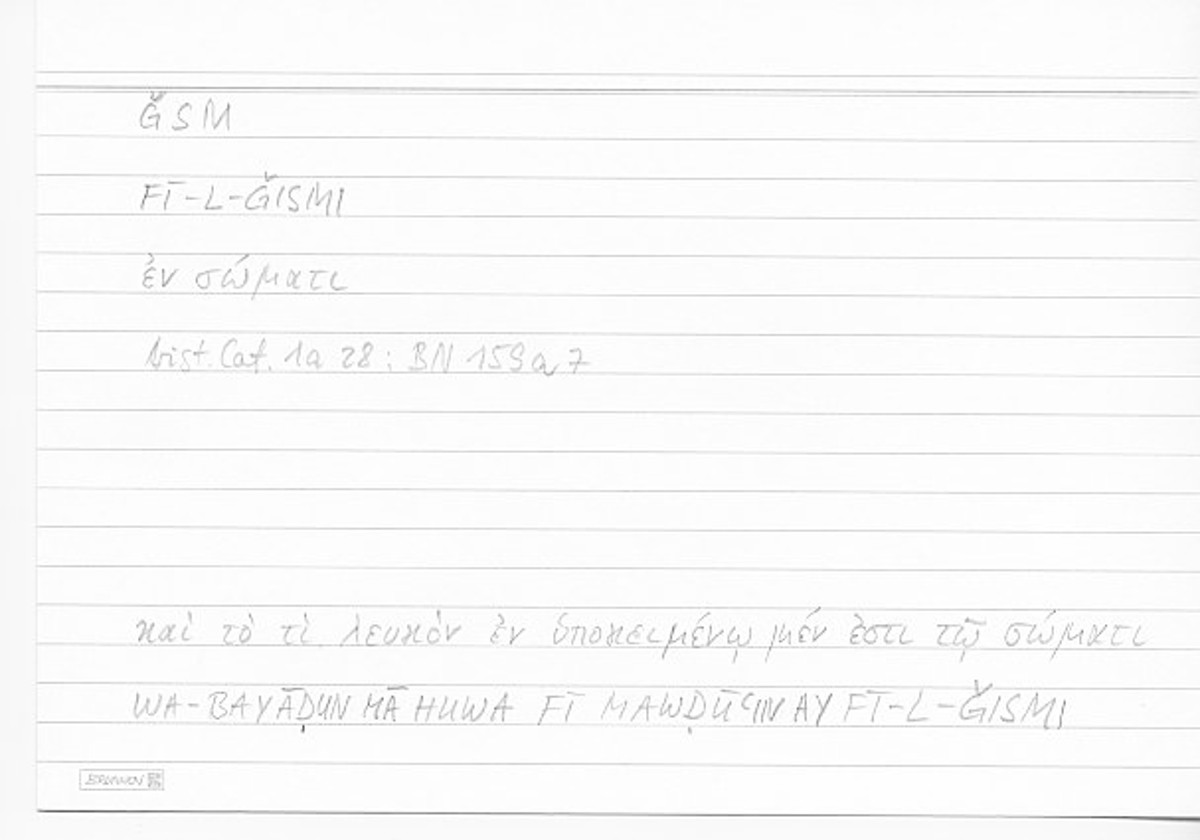 ǦSM
FĪ-L-ǦISMI
ἐν σώματι
Arist. Cat. 1a 28; BN 159a7
καὶ τὸ τὶ λευκὸν ἐν ὑποκειμένῳ μέν ἐστι τῷ σώματι
WA-BAYĀḌUN MĀ HUWA FĪ MAWḌŪʿIN AY FĪ-L-ǦISMI
BRUNNEN